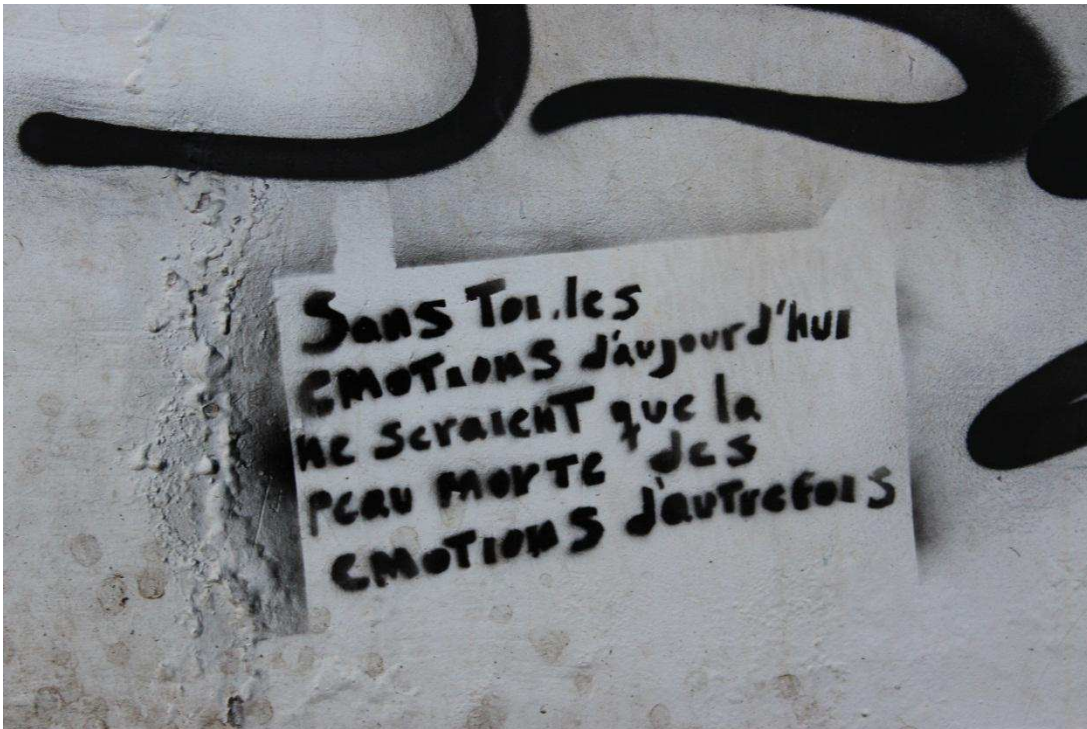 Sans Toi, les
EMOTIONS d'aujourd'hui
ne seraient que la
peau morte des
EMOTIONS d'autrefois